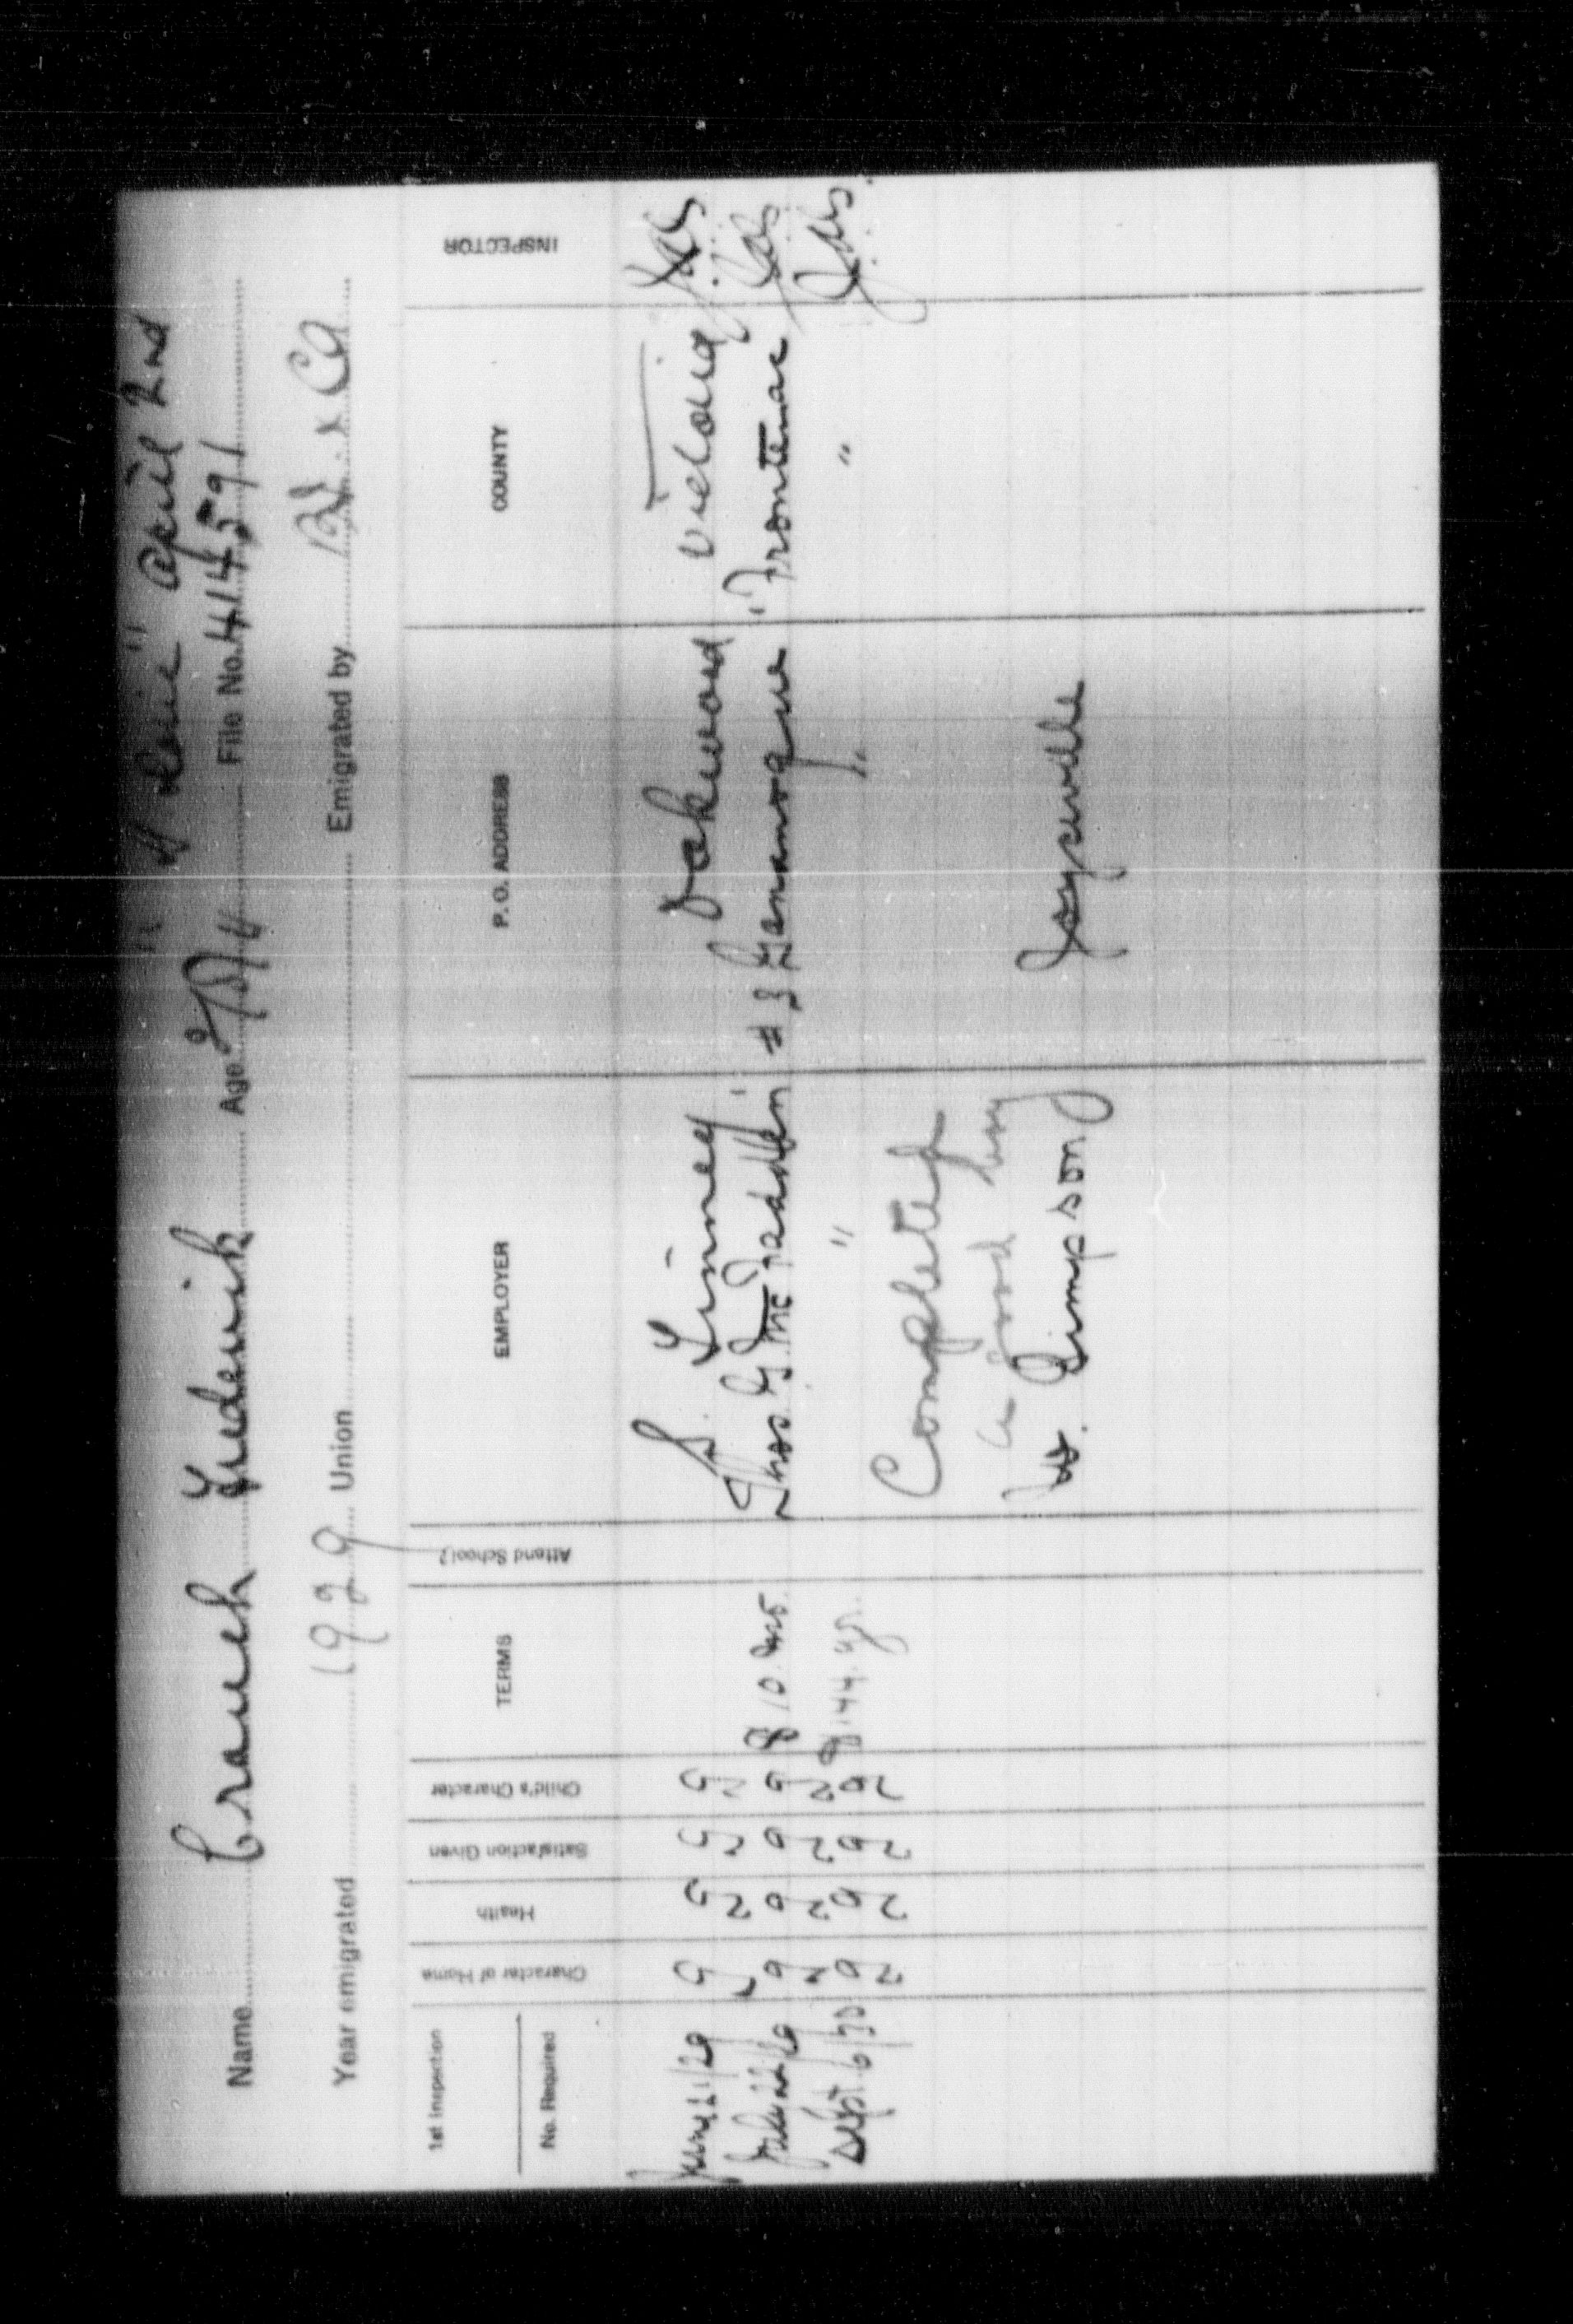 April 2nd
Name Crouch Frederick Age File No. 414591
Year emigrated 1929 Union Emigrated by
1st Inspection
No. Required
Character of Home
Health
Satisfaction Given
Child's Character
TERMS
Attend School?
EMPLOYER
P. O. ADDRESS
COUNTY
INSPECTOR
/29 G G G G S. Finney Oakwood Victoria
July 22/29 G G G G $10 mo. Thos. G. McFadden #3 Gananoque Frontenac
Sept 6/30 G G G G $144 yr. " " "
Completed
a good boy
W. Simpson Joyceville